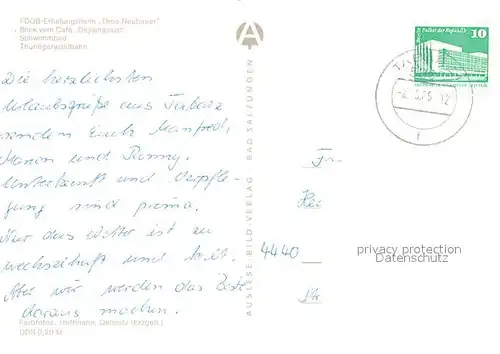 FDGB-Erholungsheim "Theo Neubauer"
Blick vom Café
Schwimmbad
Thüringerwaldbahn
Die herzlichsten
Urlaubsgrüße aus Tabarz
senden Euch Manfred,
Marion und Ronny.
Unterkunft und Verpfle-
gung sind prima.
Nur das Wetter ist zu
wechselhaft und kalt.
Aber wir werden das Beste
daraus machen.
Farbfotos: Hoffmann, Oelsnitz (Erzgeb.)
DDR 0,20 M
AUSLESE-BILD-VERLAG BAD SALZUNGEN
A
Palast der Republik
10
12
t
Fr.
4440
privacy protection
Datenschutz